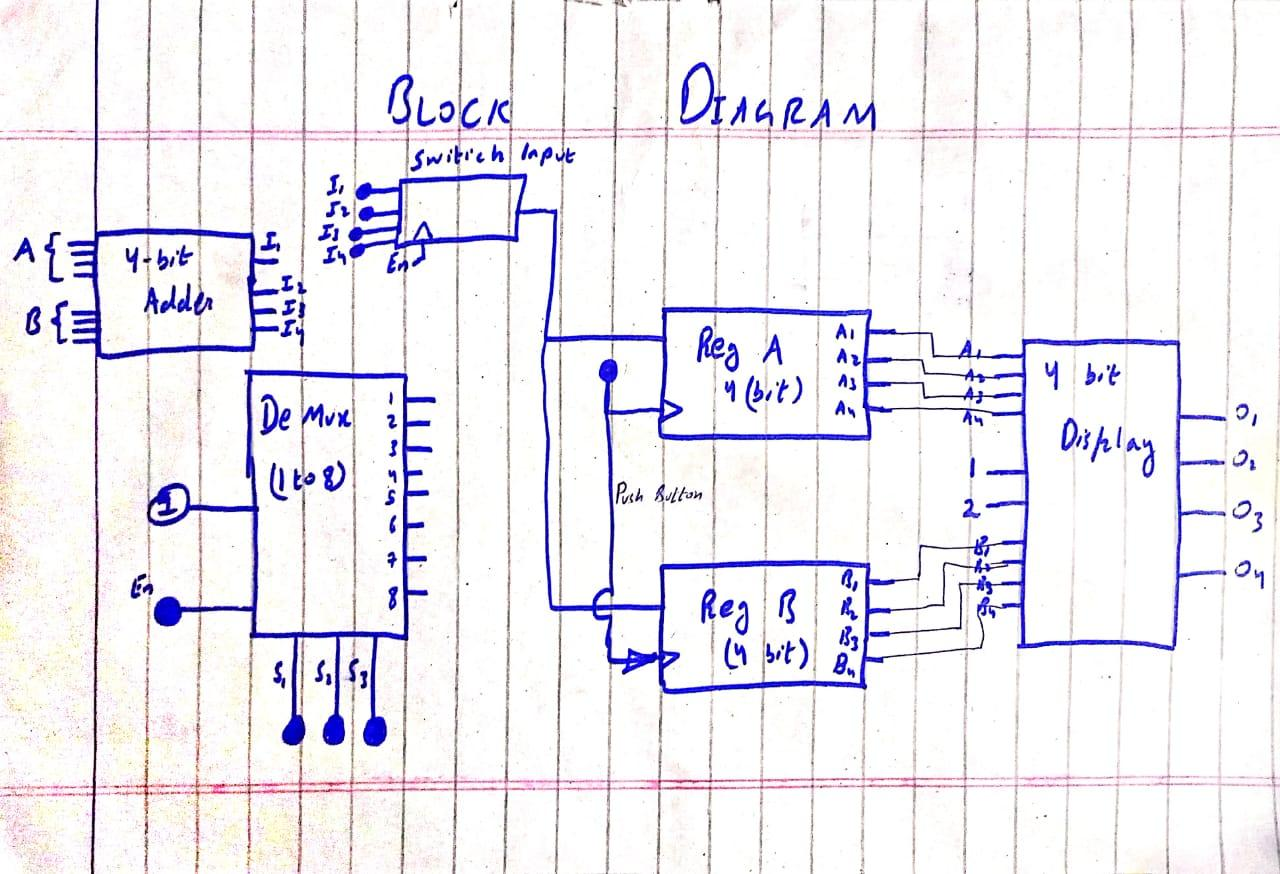 BLOCK DIAGRAM
Switich Input
I1
I2
I3
I4
En
A
B
4-bit
Adder
I1
I2
I3
I4
De Mux
(1 to 8)
1
2
3
4
5
6
7
8
I
En
S1 S2 S3
Reg A
4 (bit)
A1
A2
A3
A4
Push Button
Reg B
(4 bit)
B1
B2
B3
B4
A1
A2
A3
A4
1
2
B1
B2
B3
B4
4 bit
Display
O1
O2
O3
O4